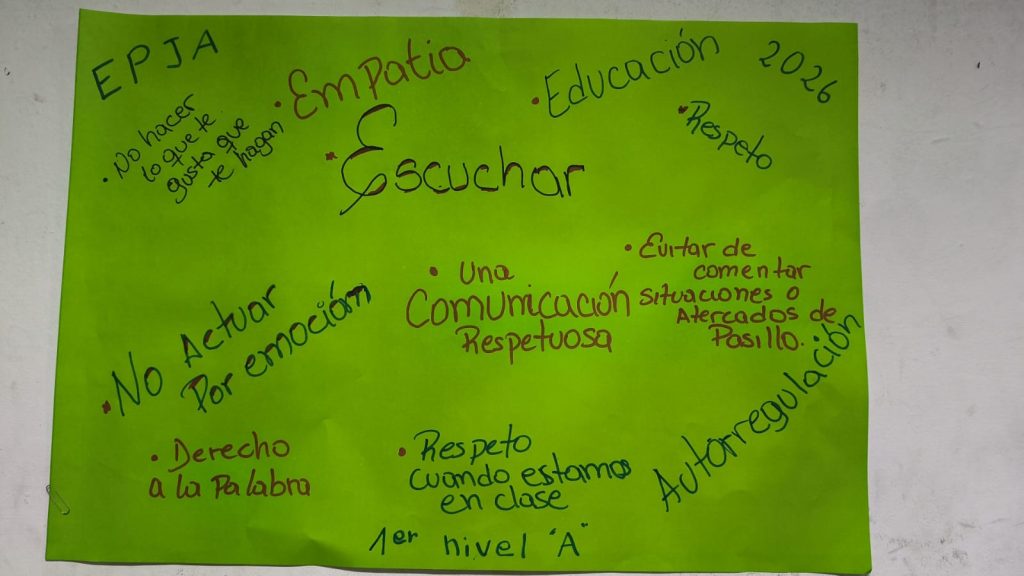 EPJA
2026
• Empatia
• Educación
• Respeto
• No hacer
lo que te
gusta que
te hagan
• Escuchar
• Una
Comunicación
Respetuosa
• Evitar de
comentar
situaciones o
Atercados de
Pasillo.
• No Actuar
Por emoción
Autorregulación
• Derecho
a la Palabra
• Respeto
cuando estamos
en clase
1er nivel "A"